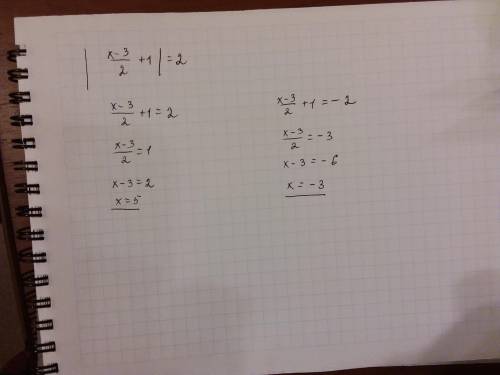 | (x-3)/2 +1 | = 2
(x-3)/2 +1 = 2
(x-3)/2 = 1
x-3 = 2
x = 5
(x-3)/2 +1 = -2
(x-3)/2 = -3
x-3 = -6
x = -3